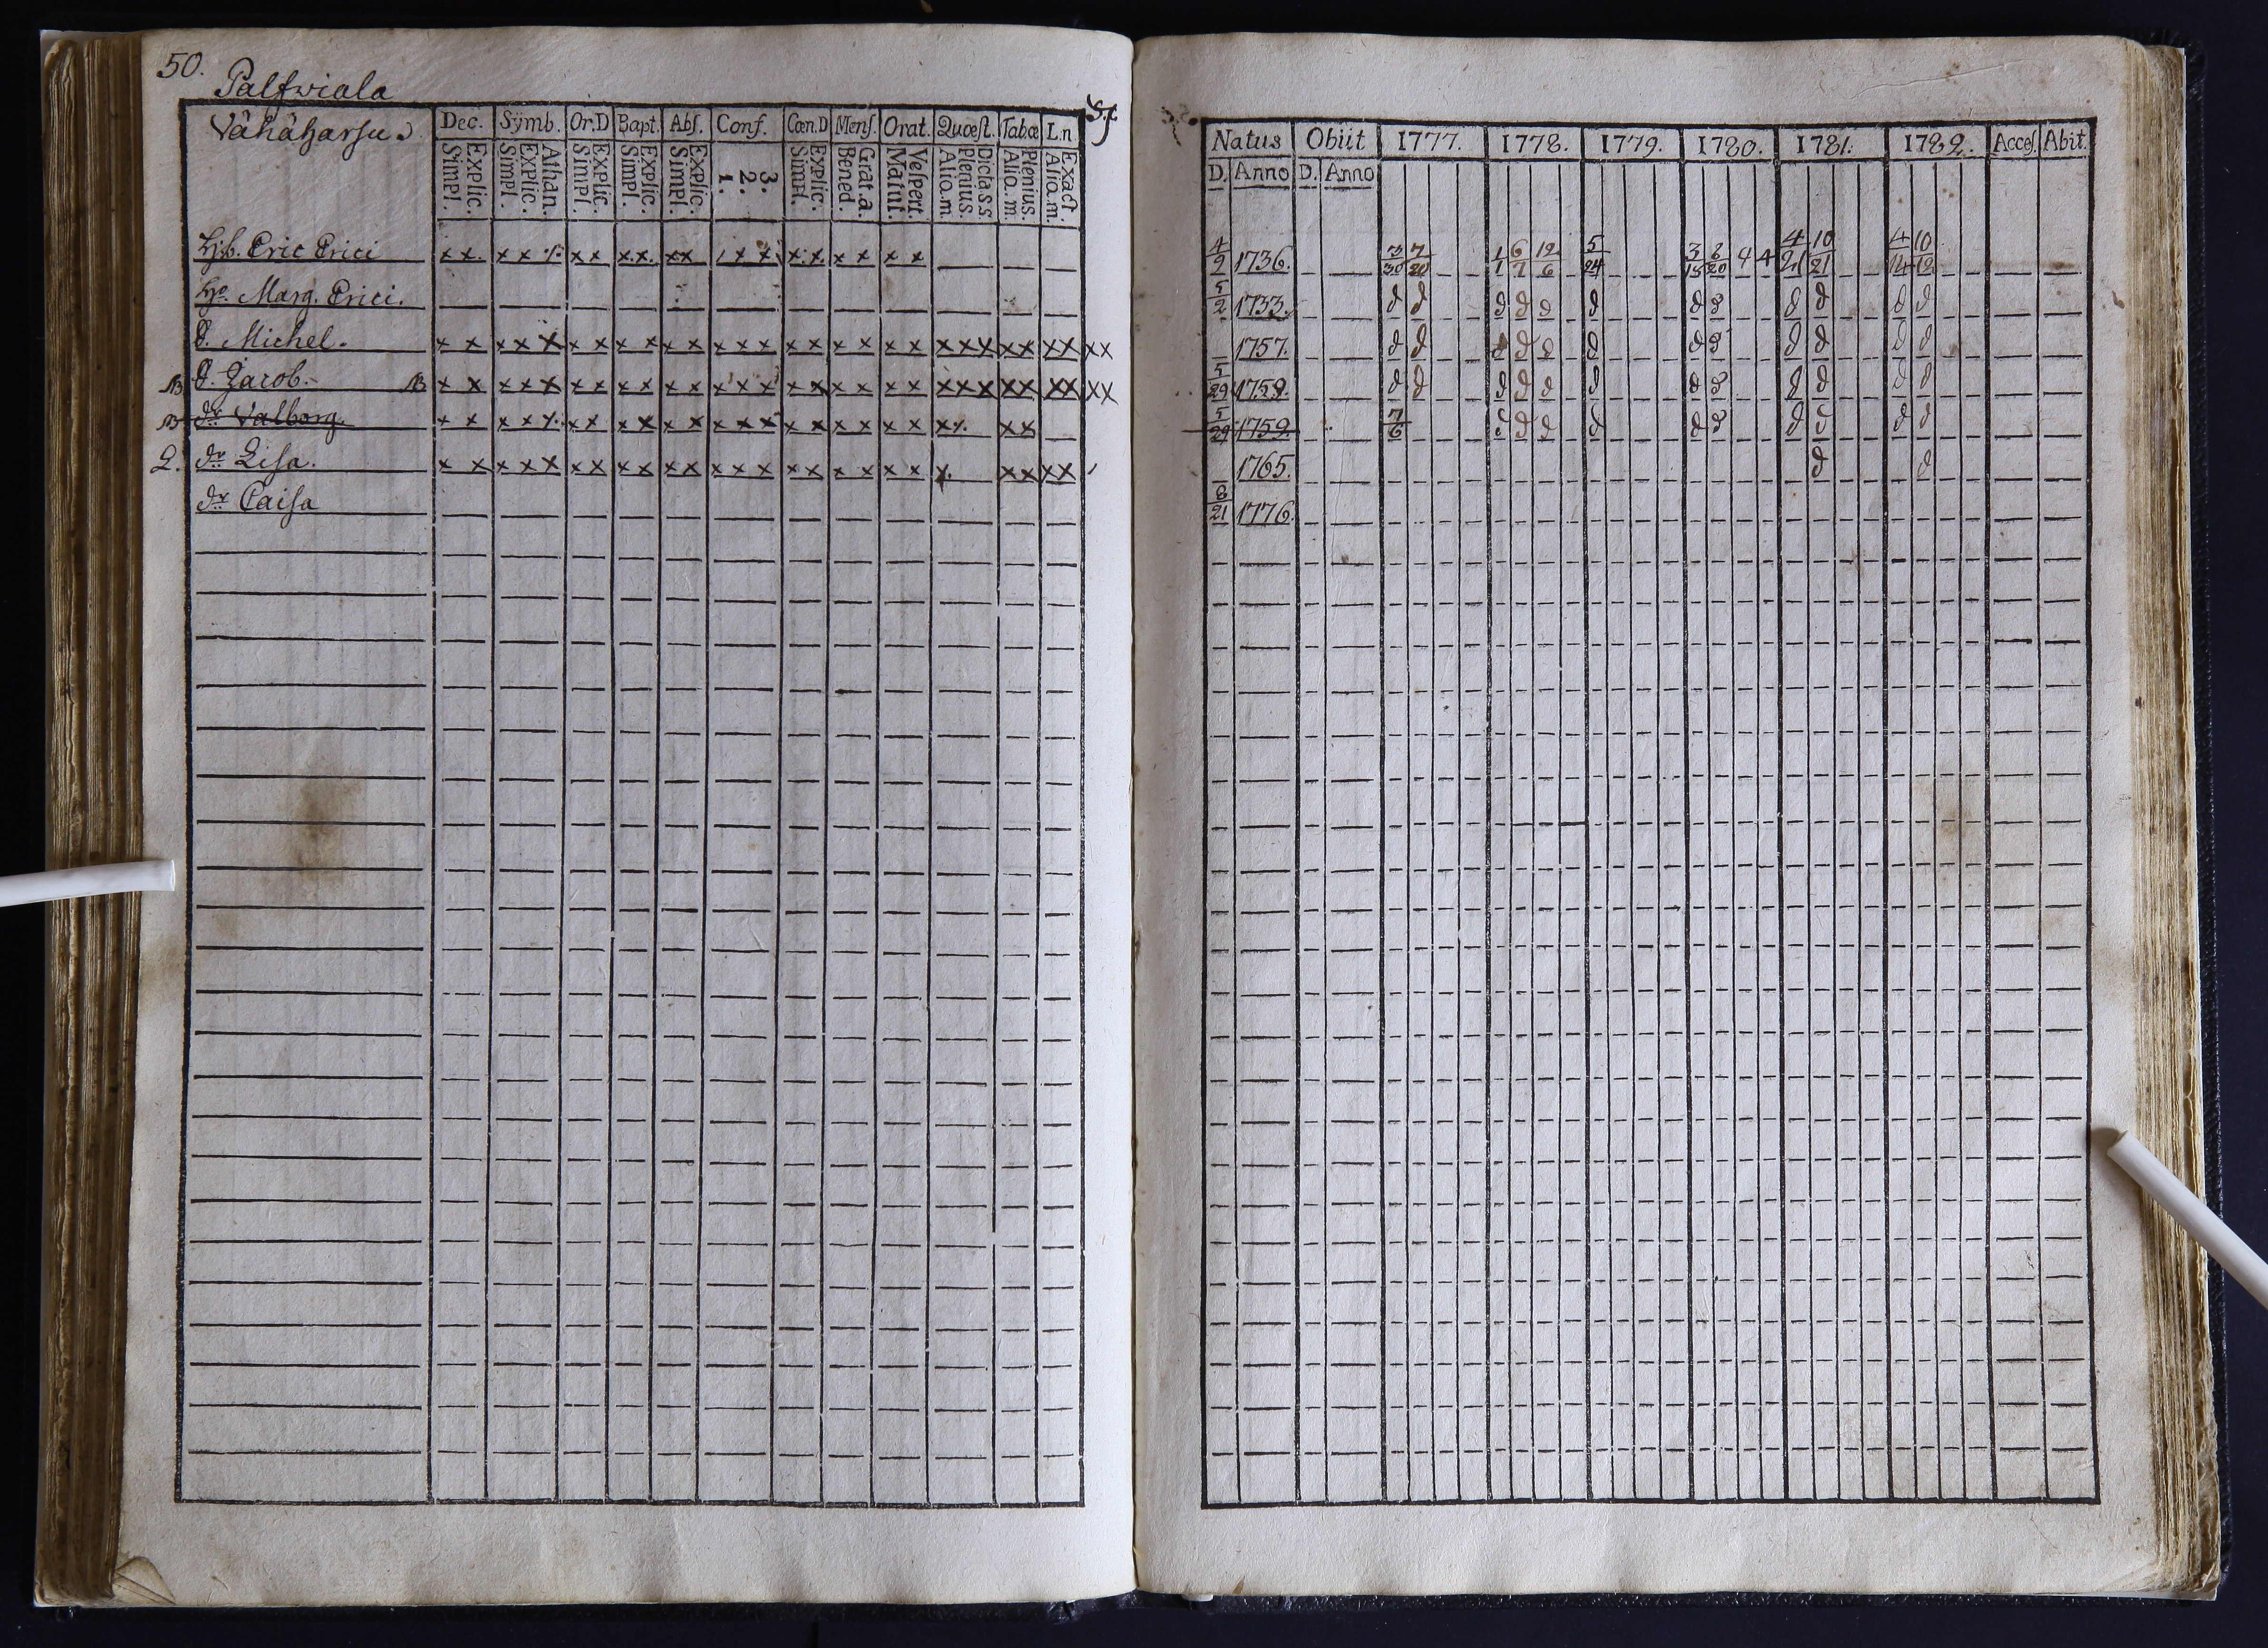 50.
Palfwiala
Vähäharju.
Dec. Sÿmb. Or.D Bapt. Abs. Conf. Cœn.D Mens. Orat. Quœst. Tabœ L.n
Simpl. Explic. Simpl. Explic. Athan. Simpl. Explic. Simpl. Explic. Simpl. Explic. 1. 2. 3. Simpl. Explic. Bened. Grat.a. Matut. Vespert. Alio.m. Plenius. Dicta.s.s Alio.m. Plenius. Alio.m. Exact.
Hjb. Eric Erici x x. x x ⁒ x x x.x. xx , x x x.x. x x x x
Ho. Marg. Erici.
d. Michel. x x x x x x x x x x x x x x x x x x x x x x x x x x x x x
NB d. Jacob. NB x x x x x x x x x x x x x x x x x x x x x x x x x x x x x
NB dr Valborg. x x x x ⁒ x x x x x x x x x x x x x x x x ⁒ x x
L. dr Lisa. x x x x x x x x x x x x x x x x x x x x x. x x x x
dr Caisa
Natus Obiit 1777. 1778. 1779. 1780. 1781. 1782. Acces. Abit.
D. Anno D. Anno
4/2 1736. 3/30 7/20 1/1 6/7 12/6 5/24 3/18 8/20 4 4 4/21 10/21 4/14 10/12
5/2 1733. d d d d d d d d d d d d
1757. d d d d d d d d d d d d
5/29 1759. d d d d d d d d d d d d
5/29 1759. 7/6 d d d d d d d d d d
1765. d d
8/21 1776.